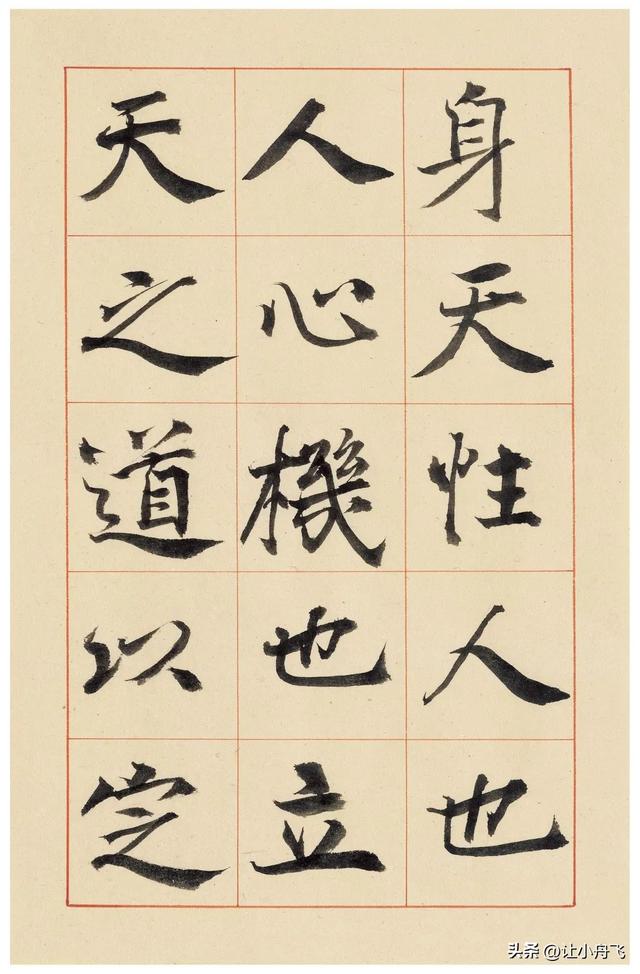 身天性人也
人心機也立
天之道以定
头条 @让小舟飞